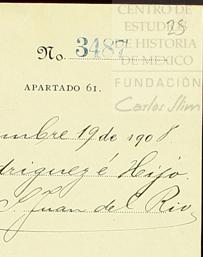 CENTRO DE
ESTUDIOS
DE HISTORIA
DE MEXICO
FUNDACIÓN
Carlos Slim
28
No. 3487
APARTADO 61.
mbre 19 de 1908
driguez é Hijo.
S. Juan del Rio